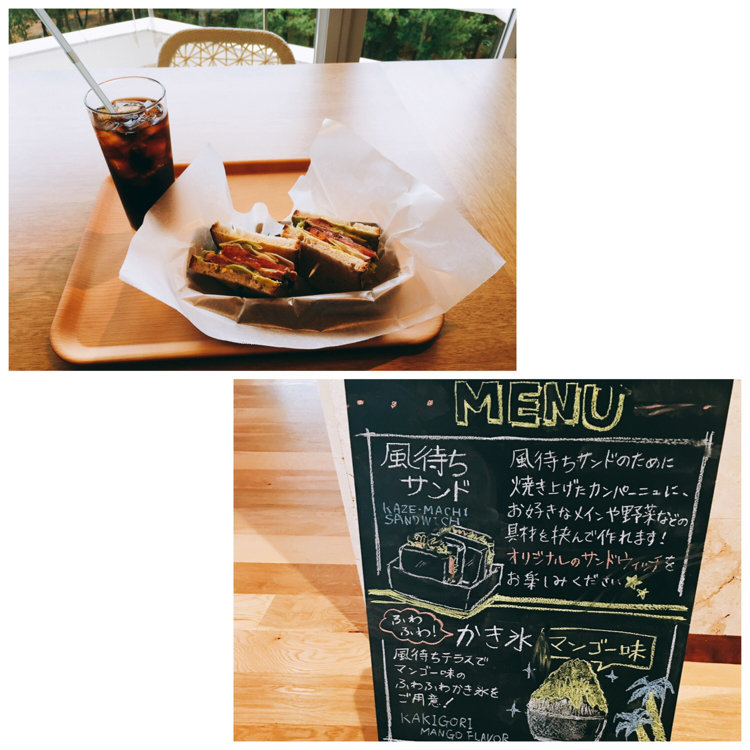 MENU
風待ち
サンド
KAZE-MACHI
SANDWICH
風待ちサンドのために
焼き上げたカンパーニュに、
お好きなメインや野菜などの
具材を挟んで作れます!
オリジナルのサンドウィッチを
お楽しみください
ふわ
ふわ!
かき氷
マンゴー味
風待ちテラスで
マンゴー味の
ふわふわかき氷を
ご用意!
KAKIGORI
MANGO FLAVOR